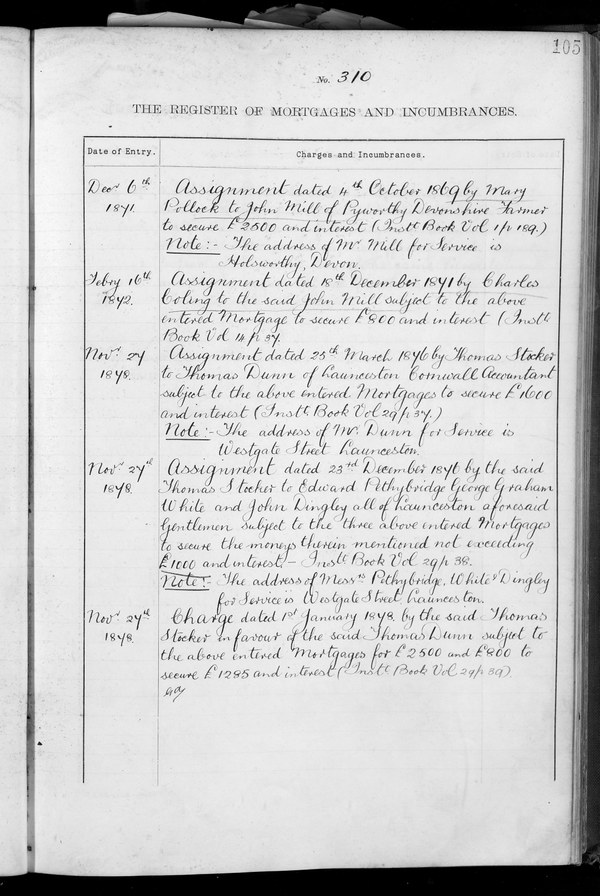 105
No. 310
THE REGISTER OF MORTGAGES AND INCUMBRANCES.
Date of Entry. Charges and Incumbrances.
Decr 6th Assignment dated 4th October 1869 by Mary
1871. Pollock to John Mill of Pyworthy Devonshire Farmer
to secure £2500 and interest (Instt Book Vol 1/p 189.)
Note:- The address of Mr Mill for Service is
Holsworthy, Devon.
Febry 16th Assignment dated 18th December 1871 by Charles
1872. Coling to the said John Mill subject to the above
entered Mortgage to secure £800 and interest (Instt
Book Vol 14/p 37.
Novr 27 Assignment dated 25th March 1876 by Thomas Stocker
1878. to Thomas Dunn of Launceston Cornwall Accountant
subject to the above entered Mortgages to secure £1600
and interest (Instt Book Vol 29/p 37.)
Note:- The address of Mr. Dunn for Service is
Westgate Street Launceston.
Novr 27th Assignment dated 23rd December 1876 by the said
1878. Thomas Stocker to Edward Pethybridge George Graham
White and John Dingley all of Launceston aforesaid
Gentlemen subject to the three above entered Mortgages
to secure the moneys therein mentioned not exceeding
£1000 and interest - Instt Book Vol 29/p 38.
Note:- The address of Messrs Pethybridge, White & Dingley
for Service is Westgate Street Launceston.
Novr 27th Charge dated 1st January 1878 by the said Thomas
1878. Stocker in favour of the said Thomas Dunn subject to
the above entered Mortgages for £2500 and £800 to
secure £1285 and interest (Instt Book Vol 29/p 39).